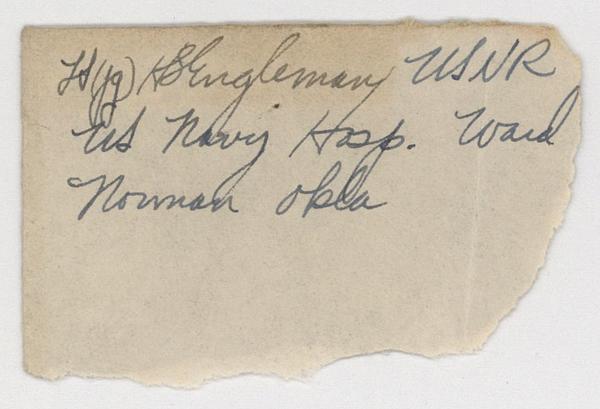 Lt(jg) HS Engleman USNR
US Navy Hosp. Ward
Norman Okla